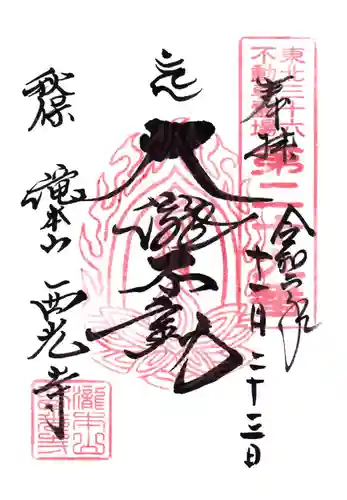 東北三十六
不動尊霊場
奉拝
令和六年
十一月二十三日
大瀧不動
秋保
滝本山 西光寺
瀧本山
西光寺